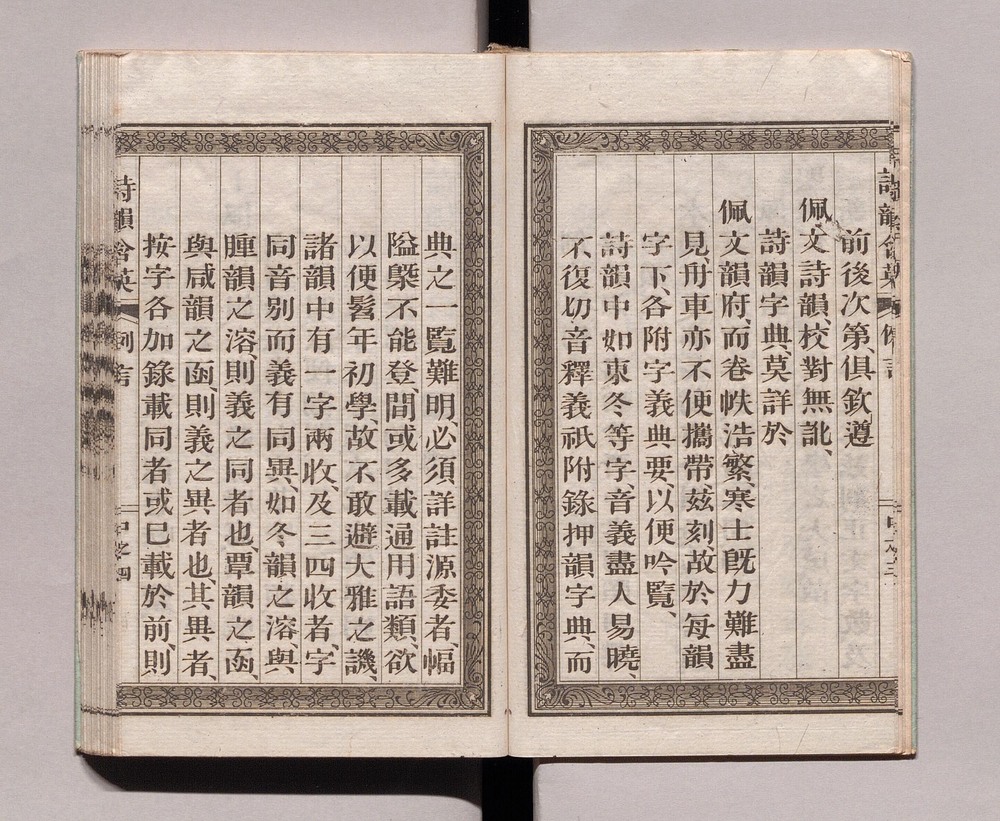 詩韻含英 例言
前後次第、俱欽遵
佩文詩韻、校對無訛、
詩韻字典、莫詳於
佩文韻府、而卷帙浩繁、寒士旣力難盡
見、舟車亦不便攜帶、茲刻、故於每韻
字下、各附字義典要、以便吟覽、
詩韻中如東冬等字、音義盡人易曉、
不復切音釋義祇附錄押韻字典、而
典之一覽難明、必須詳註源委者、幅
隘槩不能登、間或多載通用語類、欲
以便髫年初學、故不敢避大雅之譏、
諸韻中有一字兩收、及三四收者、字
同音別而義有同異、如冬韻之溶與
腫韻之溶、則義之同者也、覃韻之函、
與咸韻之函、則義之異者也、其異者、
按字各加錄載同者或已載於前、則
詩韻含英 例言